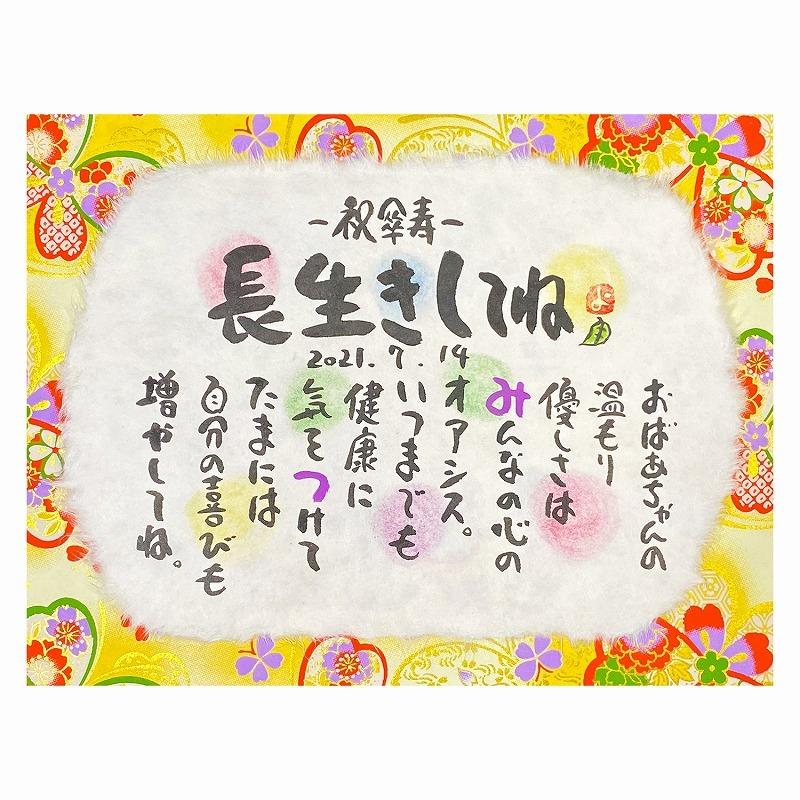 -祝傘寿-
長生きしてね
2021.7.14
おばあちゃんの
温もり
優しさは
みんなの心の
オアシス。
いつまでも
健康に
気をつけて
たまには
自分の喜びも
増やしてね。